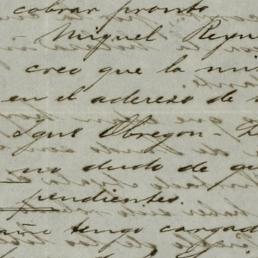 cobrar pronto
- Miguel Reyn
creo que la mi
en el aderezo de
Ygne Obregon -
no dudo de qu
pendientes.
año tengo cargad